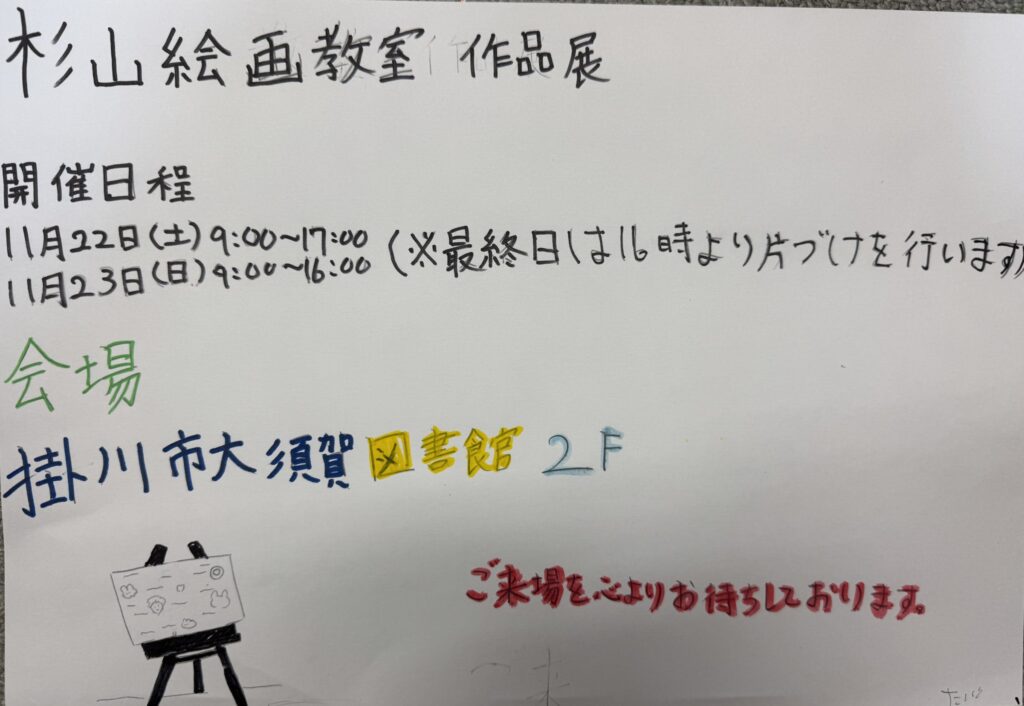 杉山絵画教室 作品展
開催日程
11月22日(土)9:00~17:00
11月23日(日)9:00~16:00(※最終日は16時より片づけを行います)
会場
掛川市大須賀図書館 2F
ご来場を心よりお待ちしております。